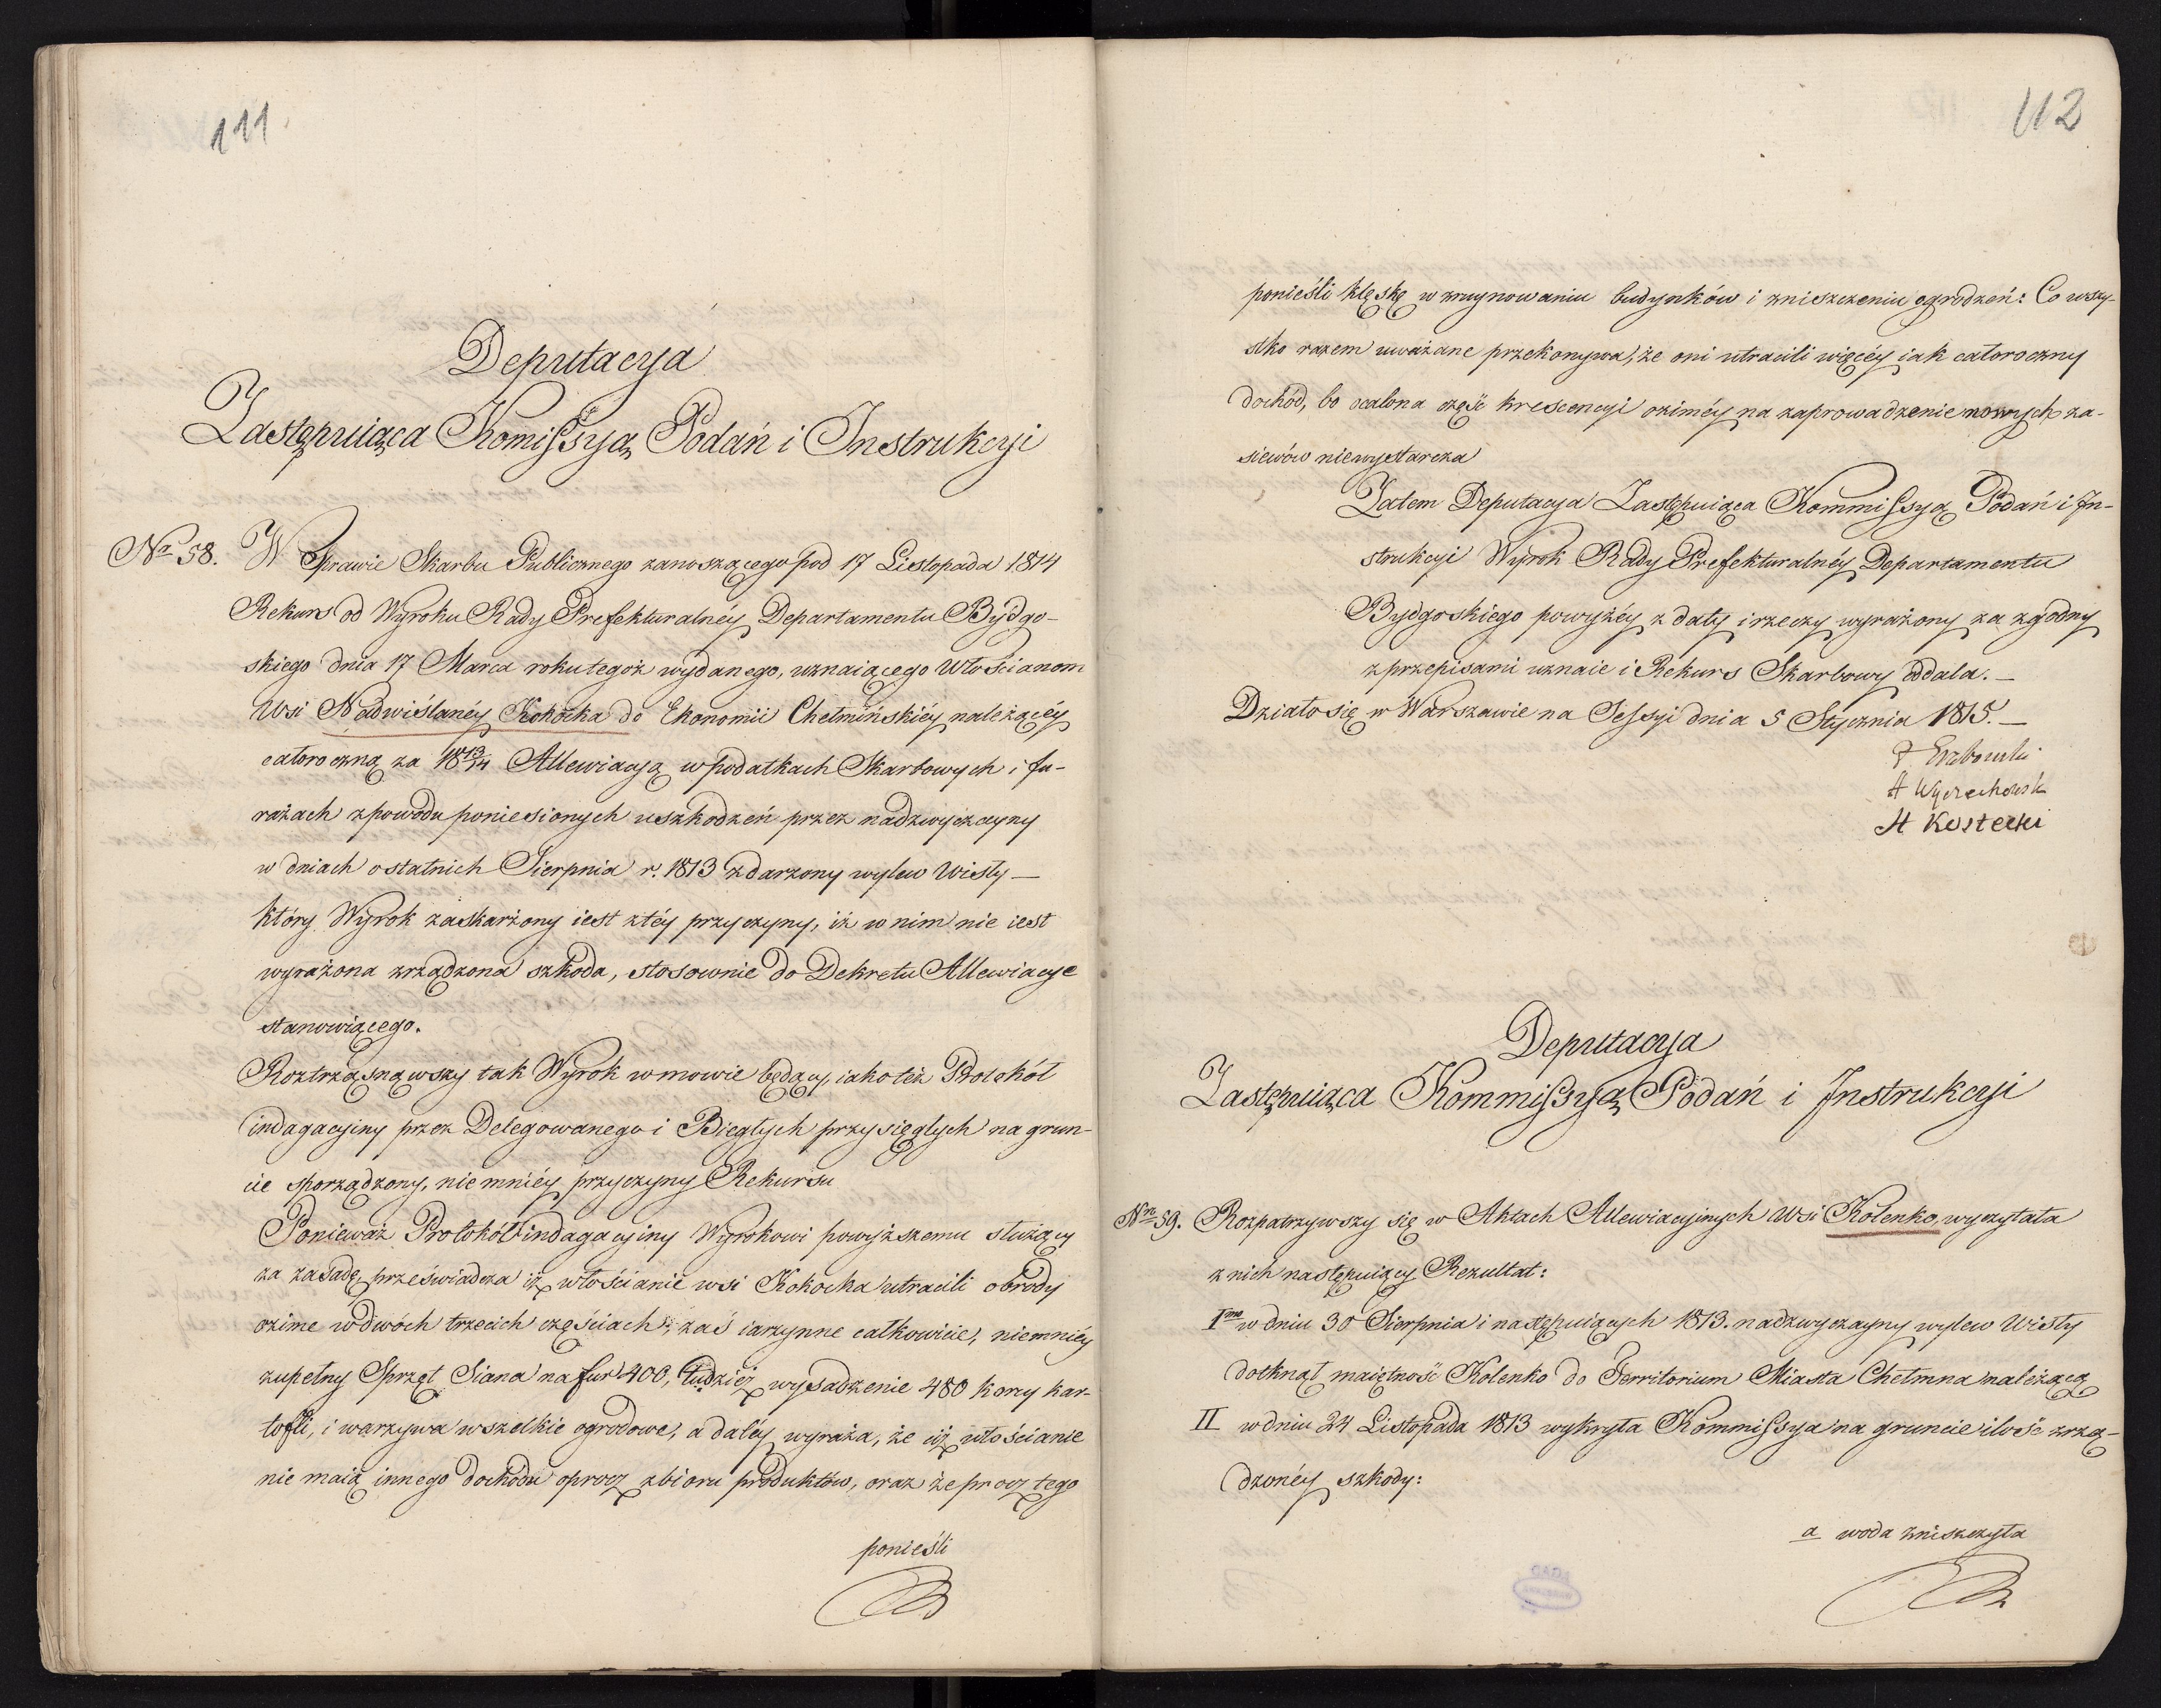 111.
Deputacya
Zastępuiąca Komissyą Podań i Instrukcyi
Nr 58. W Sprawie Skarbu Publicznego zanoszącego pod 17 Listopada 1814
Rekurs od Wyroku Rady Prefekturalnéy Departamentu Bydgo-
skiego dnia 17 Marca roku tegoż wydanego, uznaiącego Włościanom
Wsi Nadwiślanéy Kokocka do Ekonomii Chełmińskiéy należącéy
całoroczną za 1813/14 Allewiacyą w podatkach Skarbowych i fu-
rażach z powodu poniesionych uszkodzeń przez nadzwyczayny
w dniach ostatnich Sierpnia r. 1813 zdarzony wylew Wisły —
który Wyrok zaskarżony iest z téy przyczyny, iż w nim nie iest
wyrażona zrządzona szkoda, stosownie do Dekretu Allewiacye
stanowiącego.
Roztrząsnąwszy tak Wyrok w mowie będący, iako też Protokół
indagacyiny przez Delegowanego i Biegłych przysięgłych na grun-
cie sporządzony, nie mniéy przyczyny Rekursu
Ponieważ Protokół indagacyiny Wyrokowi powyższemu służący
za zasadę, przeświadcza iż włościanie wsi Kokocka utracili obrody
ozime w dwóch trzecich częściach, zaś iarzynne całkowicie, niemniéy
zupełny Sprzęt Siana na fur 400, tudzież wysadzenie 480 korcy kar-
tofli, i warzywa wszelkie ogrodowe, a daléy wyraża, że ciż włościanie
nie maią innego dochodu oprocz zbioru produktów, oraz że procz tego
ponieśli
112
ponieśli klęskę w zruynowaniu budynków i zniszczeniu ogrodzeń: Co wszy-
stko razem uważane przekonywa, że oni utracili więcéy iak całoroczny
dochód, bo ocalona część krescencyi oziméy na zaprowadzenie nowych za-
siewów niewystarcza
Zatem Deputacya Zastępuiąca Kommissyą Podań i In-
strukcyi Wyrok Rady Prefekturalnéy Departamentu
Bydgoskiego powyżéy z daty i rzeczy wyrażony za zgodny
z przepisami uznaie i Rekurs Skarbowy oddala. —
Działo się w Warszawie na Sessyi dnia 5 Stycznia 1815. —
A Wyczechowsk
A Kostecki
Deputacya
Zastępuiąca Kommissyą Podań i Instrukcyi
Nr 59. Rozpatrzywszy się w Aktach Allewiacyinych Wsi Kolenko, wyczytała
z nich następuiący Rezultat:
Imo w dniu 30 Sierpnia i następuiących 1813. nadzwyczayny wylew Wisły
dotknął maiętność Kolenko do Territorium Miasta Chełmna należącą
II w dniu 24 Listopada 1813 wykryła Kommissya na gruncie ilość zrzą-
dzonéy szkody:
a woda zniszczyła